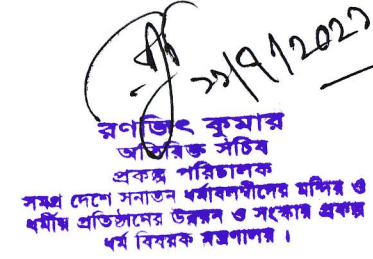 ২২/৭/২০২১
রণজিৎ কুমার
অতিরিক্ত সচিব
প্রকল্প পরিচালক
সমগ্র দেশে সনাতন ধর্মাবলম্বীদের মন্দির ও
ধর্মীয় প্রতিষ্ঠানের উন্নয়ন ও সংস্কার প্রকল্প
ধর্ম বিষয়ক মন্ত্রণালয় ।